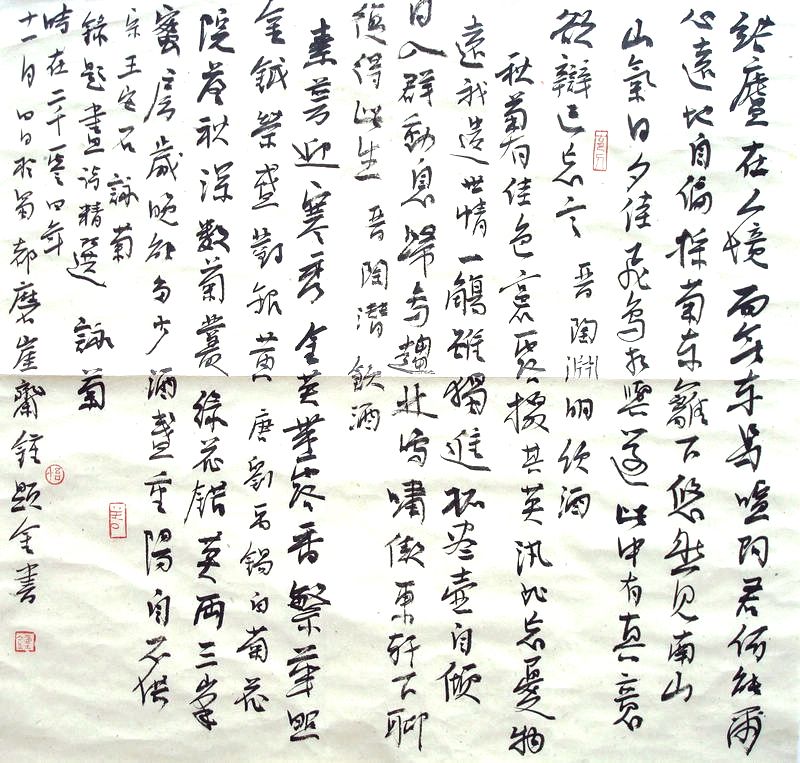 結廬在人境而無車馬喧問君何能爾
心遠地自偏採菊東籬下悠然見南山
山氣日夕佳飛鳥相與還此中有真意
欲辯已忘言 晉陶淵明飲酒
秋菊有佳色裛露掇其英汎此忘憂物
遠我遺世情一觴雖獨進杯盡壺自傾
日入群動息歸鳥趨林鳴嘯傲東軒下聊
復得此生 晉陶潛飲酒
素萼迎寒秀金英帶露香繁華照
金鉞榮盛對銀黃 唐劉禹錫白菊花
院落秋深數菊叢綠花錯莫兩三峯
蜜房歲晚能多少酒盞重陽自不供
宋王安石詠菊
錄題畫詩精選 詠菊
時在二千零四年
十一月四日於蜀都磨崖齋鍾顯金書